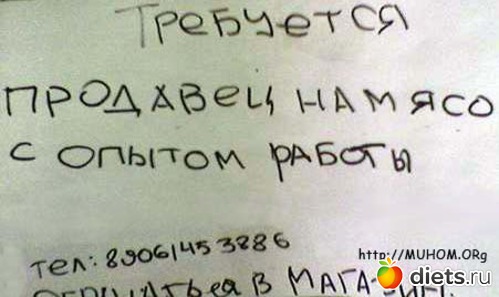 Требуется
продавец на мясо
с опытом работы
тел: 89061453886
в мага
http://MUHOM.ORg
diets.ru